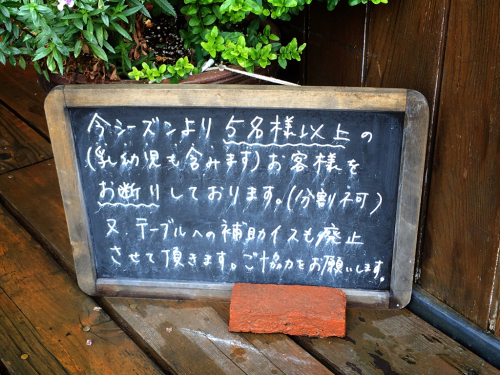 今シーズンより 5名様以上の
(乳幼児も含みます)お客様を
お断りしております。(分割不可)
又 テーブルへの補助イスも廃止
させて頂きます。ご協力をお願いします。